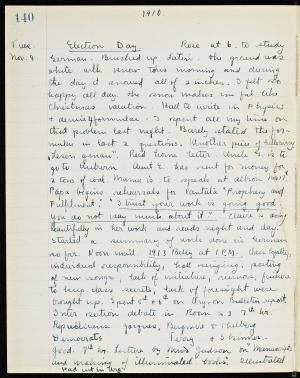 140
1910.
Tues. Election Day. Rose at 6. to study
Nov. 8 German. Brushed up Latin. The ground was
white with snow this morning and during
the day it snowed all of 2 inches. I felt so
happy all day. The snow makes me feel like
Christmas vacation. Had to write in Physics
& derive formulae. I spent all my time on
that problem last night. Barely stated the for-
mulae in last 2 questions. Another piece of
"Lesen genau". Read home letter. Uncle I. is to
go to Auburn. Aunt E. has sent for money for
a ton of coal. Mamie is to speak at Aeon
Papa begins rehearsals for Cantata "Prophecy and
Fulfilment." "I trust your work is going good;
you do not say much about it." Claire is doing
beautifully in her work and reads night and day.
Started a summary of work done in German
so far. Noon mail. 1913 Rally at 1 P.M. Class loyalty,
individual responsibility, bad singing, posting
of new songs, lack of initiative, serious, failure
to keep class secrets, lack of foresight were
brought up. Spent 5th & 6th on Argon Bulletin report
Inter section debate in Room 23 7th hr.
Republicans
Democrats Terry & Skinner.
Good. 7th hr. Lecture by Miss Judson on "Manuscripts
and making of illuminated books." Illustrated